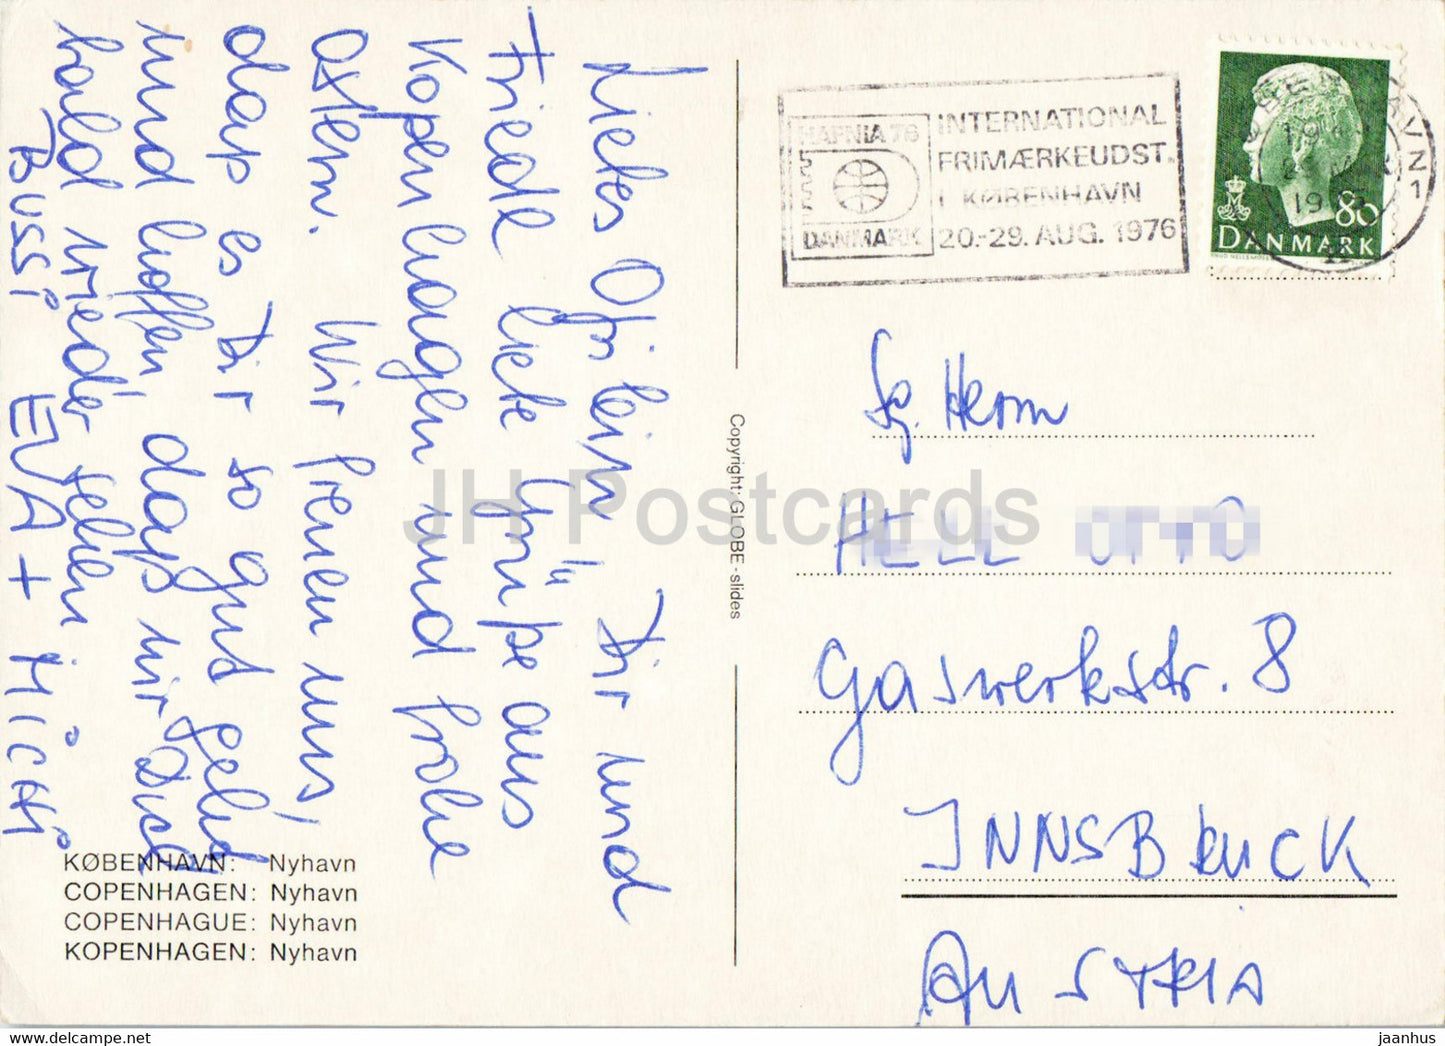 Liebes Ottilein, Dir und
Friedl liebe Grüße aus
Kopenhagen und frohe
Ostern. Wir freuen uns,
daß es Dir so gut geht
und hoffen, daß wir Dich
bald wieder sehen
Bussi EVA + MICHI
KØBENHAVN: Nyhavn
COPENHAGEN: Nyhavn
COPENHAGUE: Nyhavn
KOPENHAGEN: Nyhavn
Copyright: GLOBE-slides
HAFNIA 76
DANMARK
INTERNATIONAL
FRIMÆRKEUDST.
I KØBENHAVN
20.-29. AUG. 1976
KØBENHAVN
80
DANMARK
Sg. Herrn
HELL OTTO
Gaswerkstr. 8
INNSBRUCK
AUSTRIA
JH Postcards
hipstamp.com/store/jaanhus